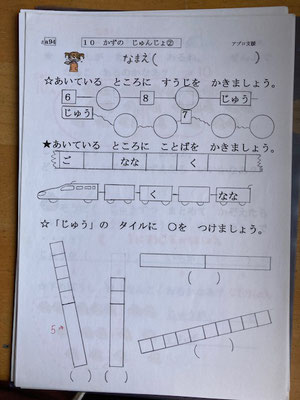 １０ かずの じゅんじょ②
なまえ（ ）
☆あいている ところに すうじを かきましょう。
6 8 じゅう
じゅう 7
★あいている ところに ことばを かきましょう。
ご なな く
く なな
☆「じゅう」の タイルに ○を つけましょう。
（ ）
5
（ ） （ ） （ ）